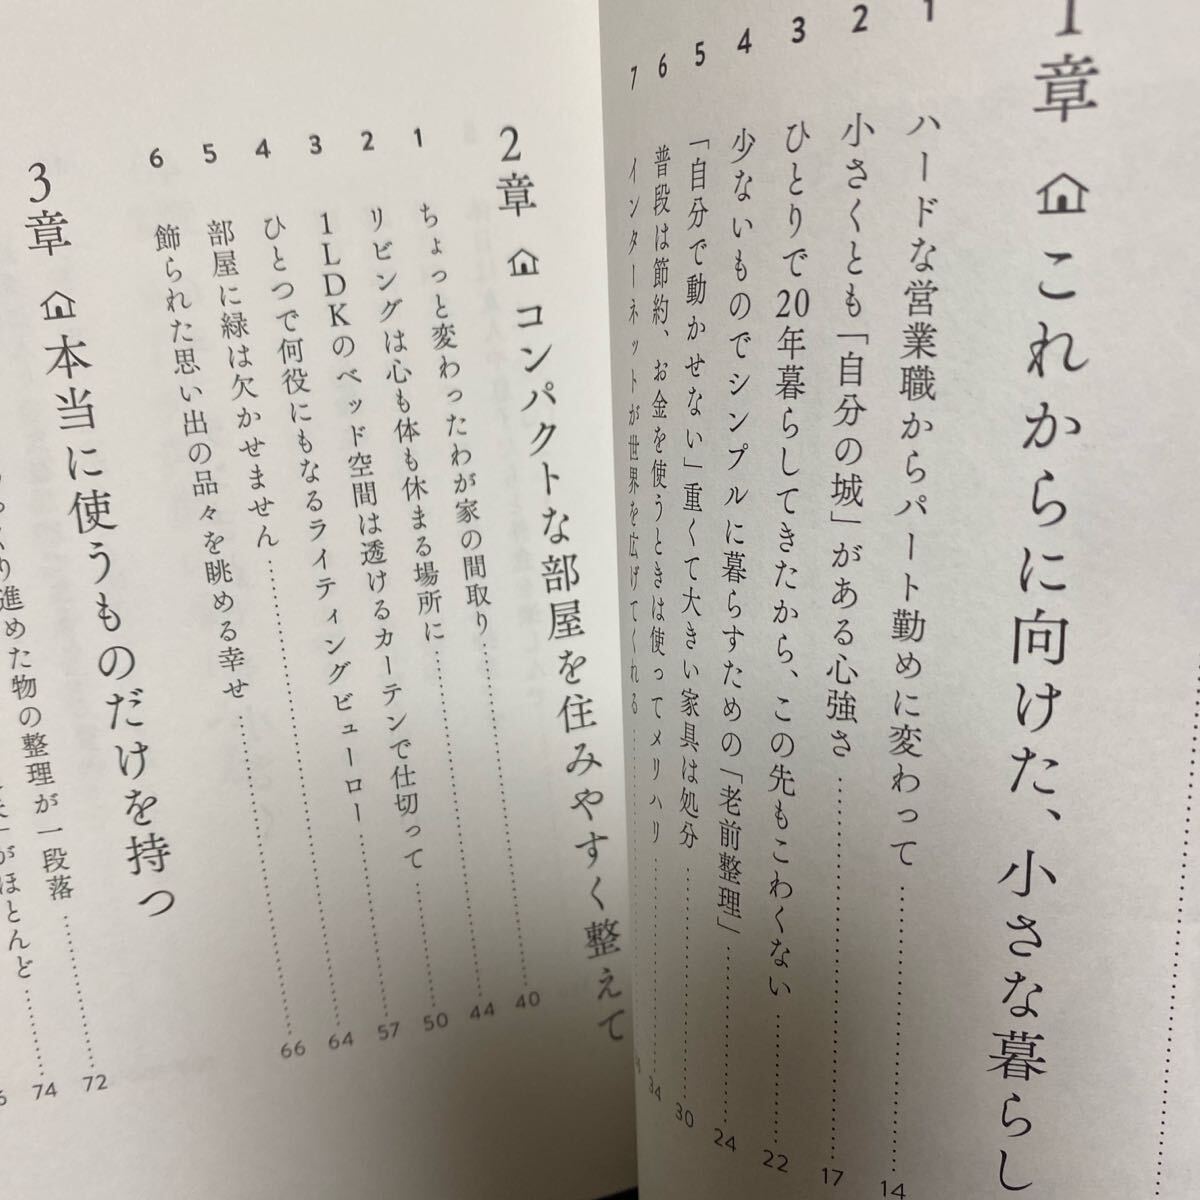 1章 これからに向けた、小さな暮らし
1 ハードな営業職からパート勤めに変わって 14
2 小さくとも「自分の城」がある心強さ 17
3 ひとりで20年暮らしてきたから、この先もこわくない 22
4 少ないものでシンプルに暮らすための「老前整理」 24
5 「自分で動かせない」重くて大きい家具は処分 30
6 普段は節約、お金を使うときは使ってメリハリ 34
7 インターネットが世界を広げてくれる
2章 コンパクトな部屋を住みやすく整えて
1 ちょっと変わったわが家の間取り 40
2 リビングは心も体も休まる場所に 44
3 1LDKのベッド空間は透けるカーテンで仕切って 50
4 ひとつで何役にもなるライティングビューロー 57
5 部屋に緑は欠かせません 64
6 飾られた思い出の品々を眺める幸せ 66
3章 本当に使うものだけを持つ
り進めた物の整理が一段落 72
がほとんど 74